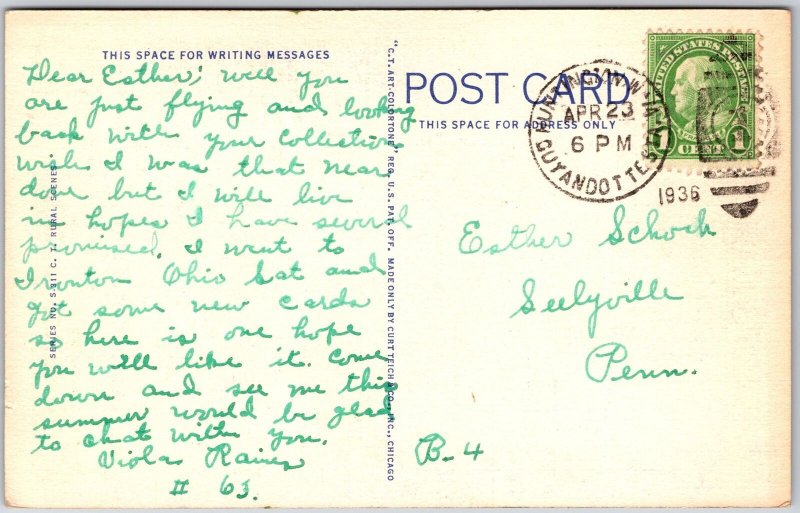 THIS SPACE FOR WRITING MESSAGES
Dear Esther: Well you
are just flying and looking
back with your collection
wish I was that near
done but I will live
in hopes I have several
promised. I went to
Ironton Ohio Sat and
got some new cards
so here is one hope
you will like it. Come
down and see me this
summer would be glad
to chat with you.
Viola Raines
# 63.
SERIES NO. S-311 C. T. RURAL SCENES"
"C.T. ART-COLORTONE" REG. U.S. PAT. OFF. MADE ONLY BY CURT TEICH & CO., INC., CHICAGO
POST CARD
THIS SPACE FOR ADDRESS ONLY
HUNTINGTON W.VA.
APR 23
6 PM
GUYANDOTTE STA.
1936
UNITED STATES POSTAGE
1 CENT 1
Esther Schoch
Seelyville
Penn.
B-4